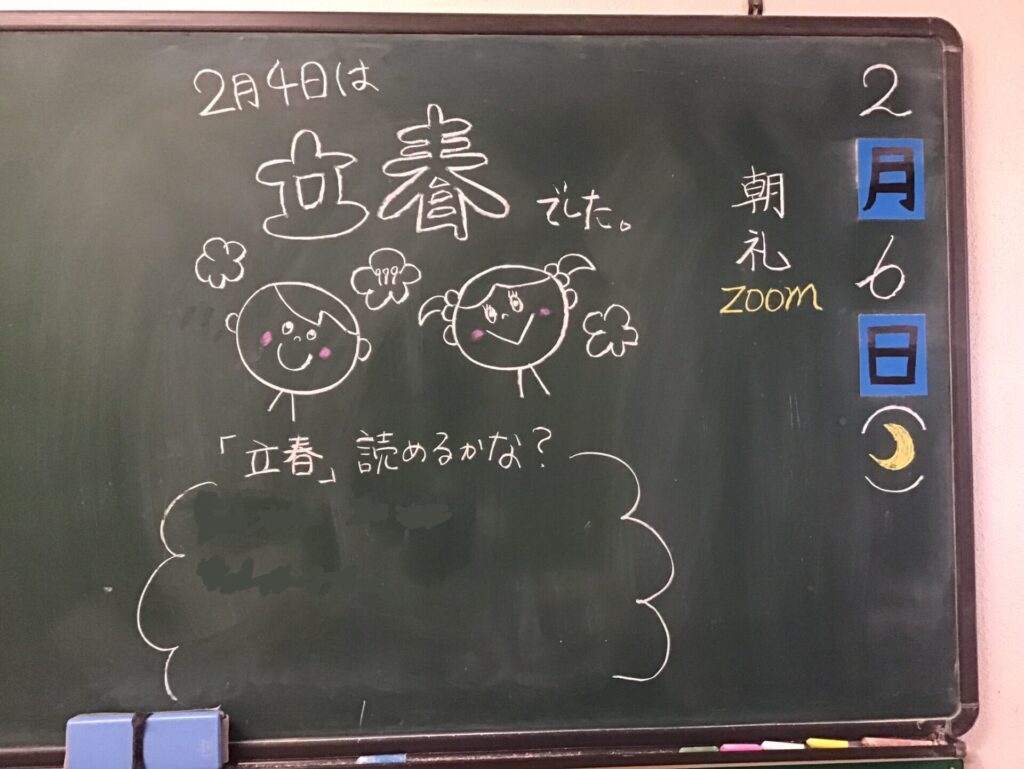 2月4日は
立春でした。
「立春」読めるかな?
朝礼
zoom
2月6日